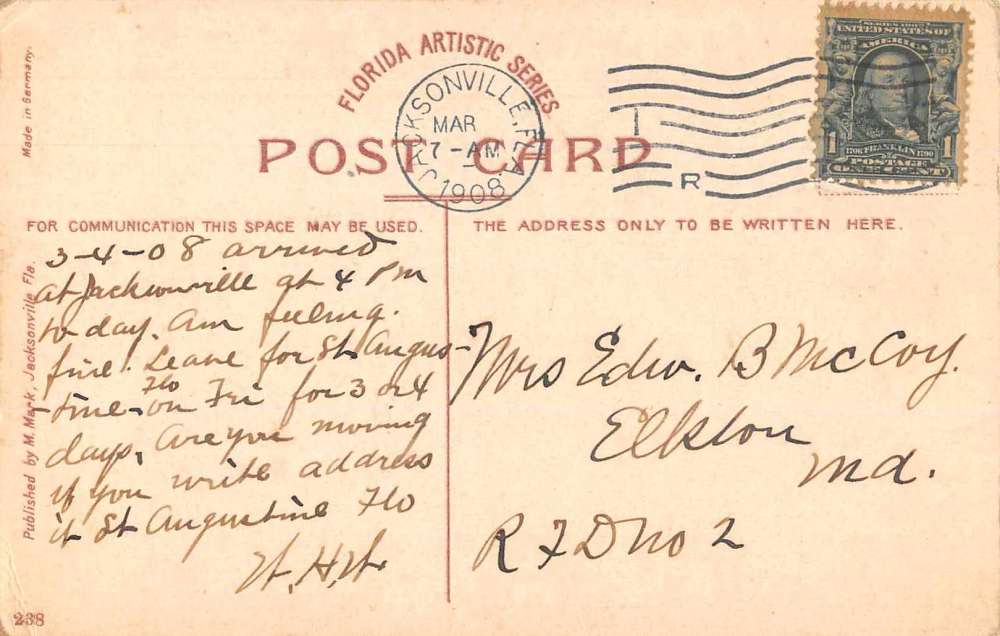 FLORIDA ARTISTIC SERIES.
POST CARD
JACKSONVILLE, FLA.
MAR
7-AM
1908
I
R
SERIES 1902
UNITED STATES OF
AMERICA
1 1
1706 FRANKLIN 1790
POSTAGE
ONE CENT
Made in Germany.
FOR COMMUNICATION THIS SPACE MAY BE USED.
THE ADDRESS ONLY TO BE WRITTEN HERE.
Published by M. Mark, Jacksonville, Fla.
3-4-08 arrived
at Jacksonville at 4 Pm
to day. Am feeling.
fine. Leave for St Augus-
-tine - Flo on Fri for 3 or 4
days. Are you moving
if you write address
it St Augustine Flo
W.H.W.
Mrs Edw. B McCoy.
Elkton
Md.
R F D No 2
238